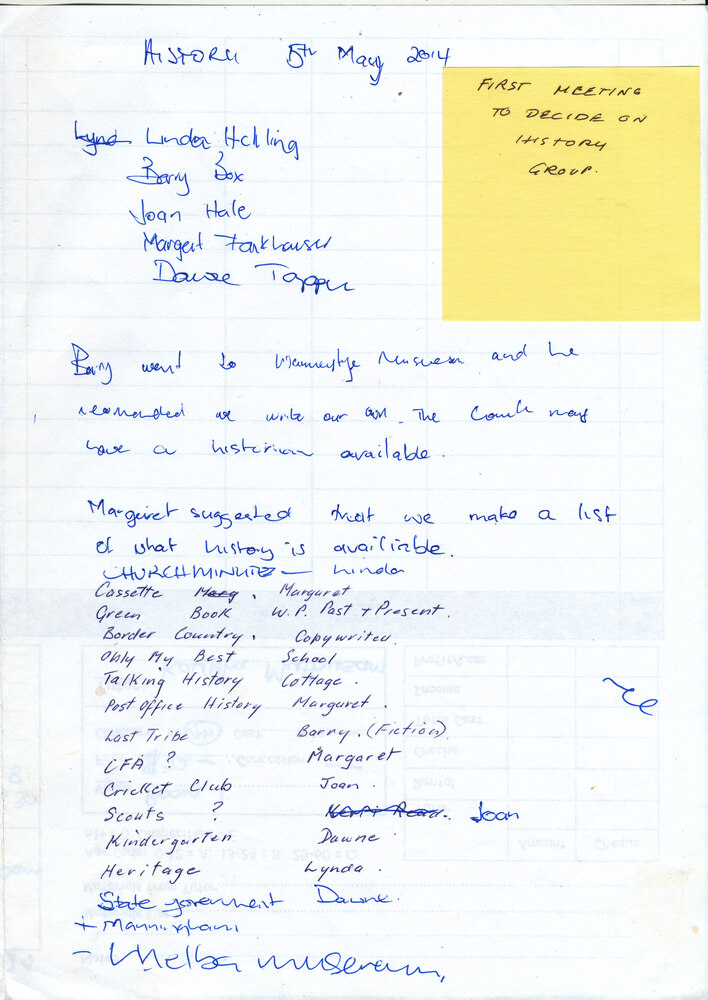 HISTORY 5th May 2014
FIRST MEETING
TO DECIDE ON
HISTORY
GROUP.
Lynda Linda Helling
Barry Box
Joan Hale
Margert Fankhauser
Dawne Tapper
Barry went to Museum and he
recomanded we write our own. The Council may
have a historian available.
Margaret suggested that we make a list
of what history is availiable.
CHURCH MINUTES — Linda
Cassette Macq. Margaret
Green Book W.P. Past + Present.
Border Country. Copywrited.
Only My Best School
Talking History Cottage.
Post Office History Margaret.
Last Tribe Barry. (Fiction)
CFA ? Margaret
Cricket Club Joan.
Scouts ? Joan
Kindergarten Dawne.
Heritage Lynda.
State goverment Dawne.
+ Manningham
- Melba museum,
Profit/Loss
Income
Cost
Creche
Rental
Amount Cheque
Concession